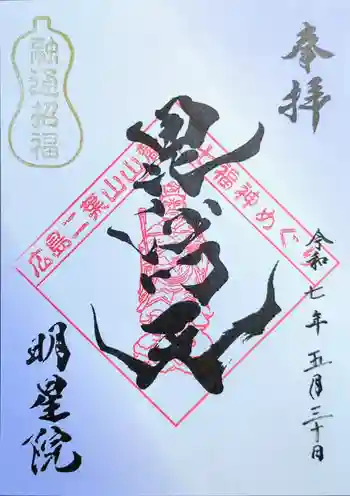 奉拝
融通招福
広島二葉山山麓七福神めぐり
毘沙門天
令和七年五月三十日
明星院